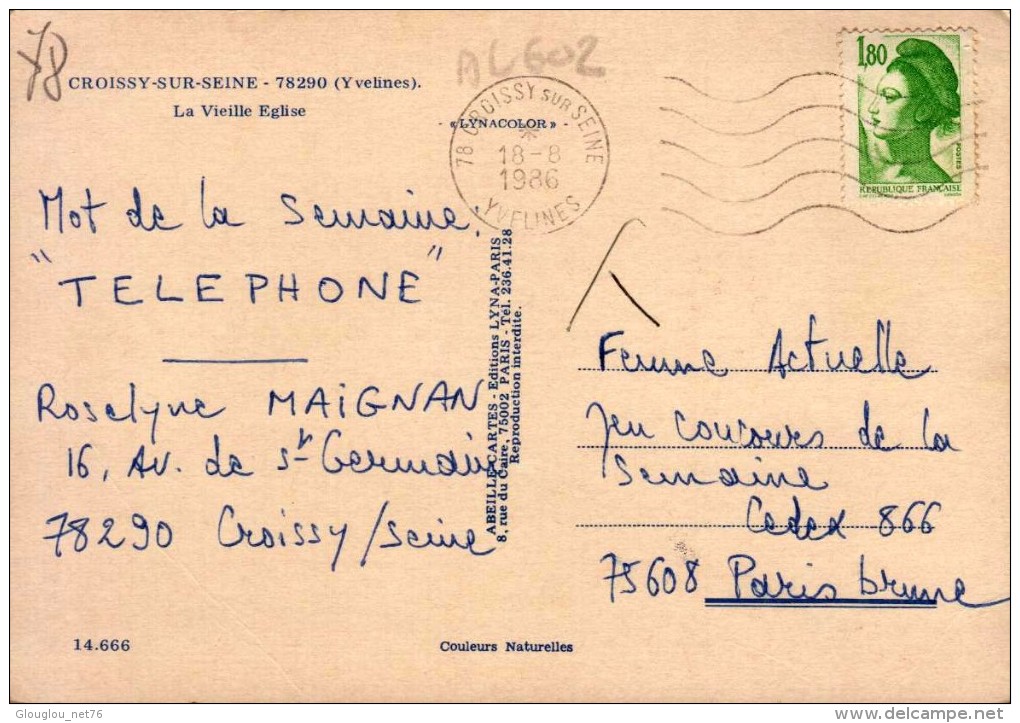 78
AL602
CROISSY-SUR-SEINE - 78290 (Yvelines).
La Vieille Eglise
- «LYNACOLOR» -
78 CROISSY SUR SEINE
18-8
1986
YVELINES
1,80
POSTES
REPUBLIQUE FRANÇAISE
Mot de la Semaine.
"TELEPHONE"
Roselyne MAIGNAN
16, Av. de St Germain
78290 Croissy/Seine
ABEILLE-CARTES - Editions LYNA-PARIS
8, rue du Caire, 75002 PARIS - Tél. 236.41.28
Reproduction interdite.
Femme Actuelle
Jeu concours de la
Semaine
Cedex 866
75608 Paris brune
14.666
Couleurs Naturelles
Glouglou_net76